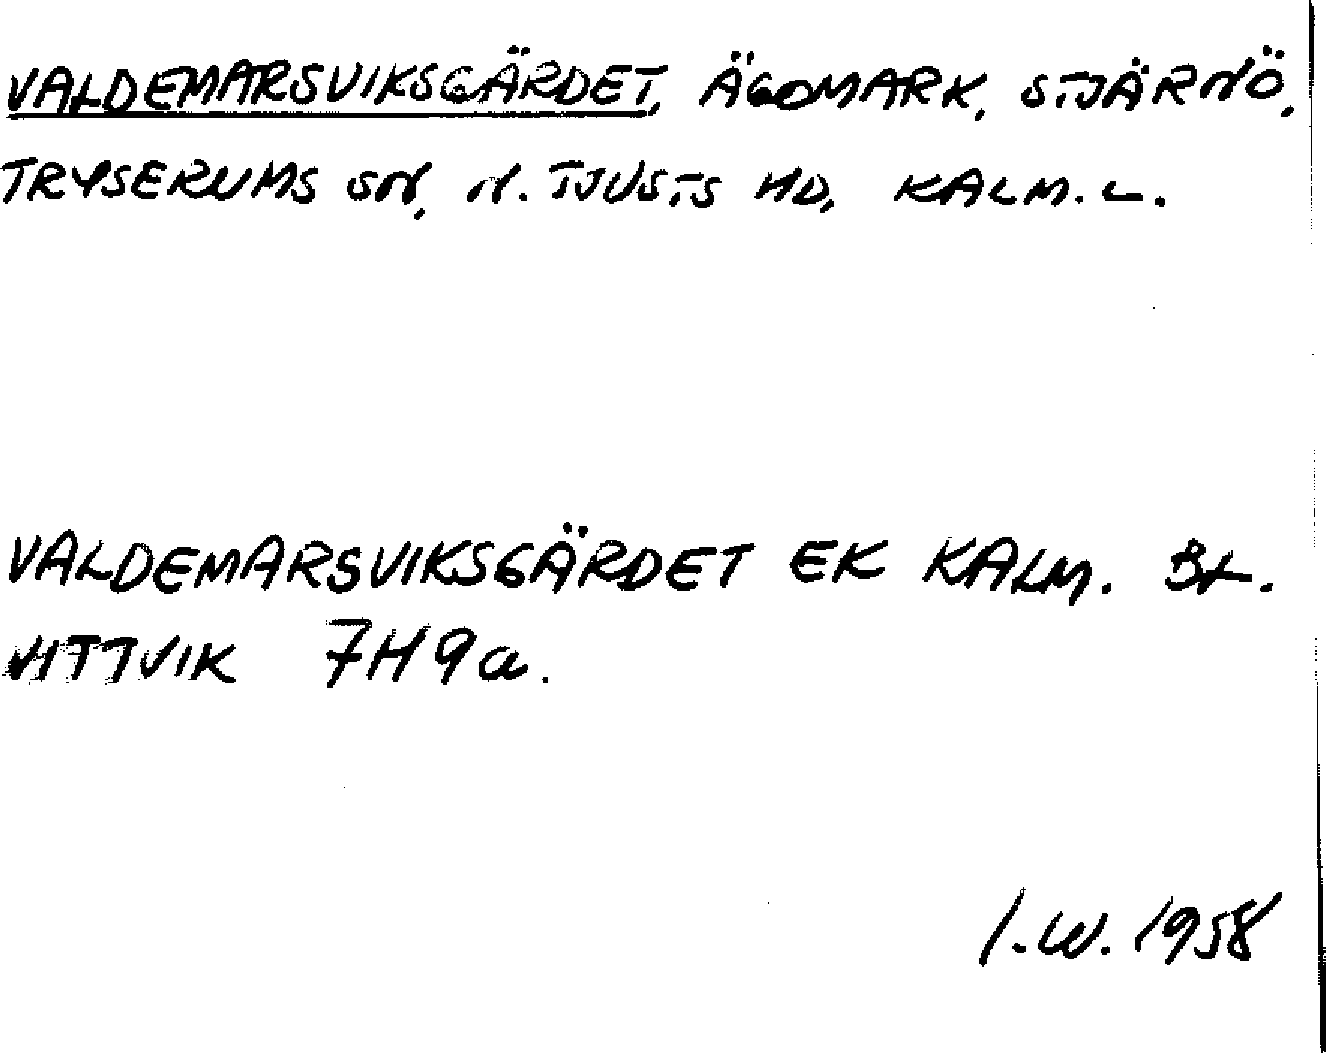 VALDEMARSVIKSGÄRDET, ÄGOMARK, STJÄRNÖ,
TRYSERUMS SN, N. TJUSTS HD, KALM. L.
VALDEMARSVIKSGÄRDET EK KALM. BL.
VITTVIK 7H9a.
I.W. 1958